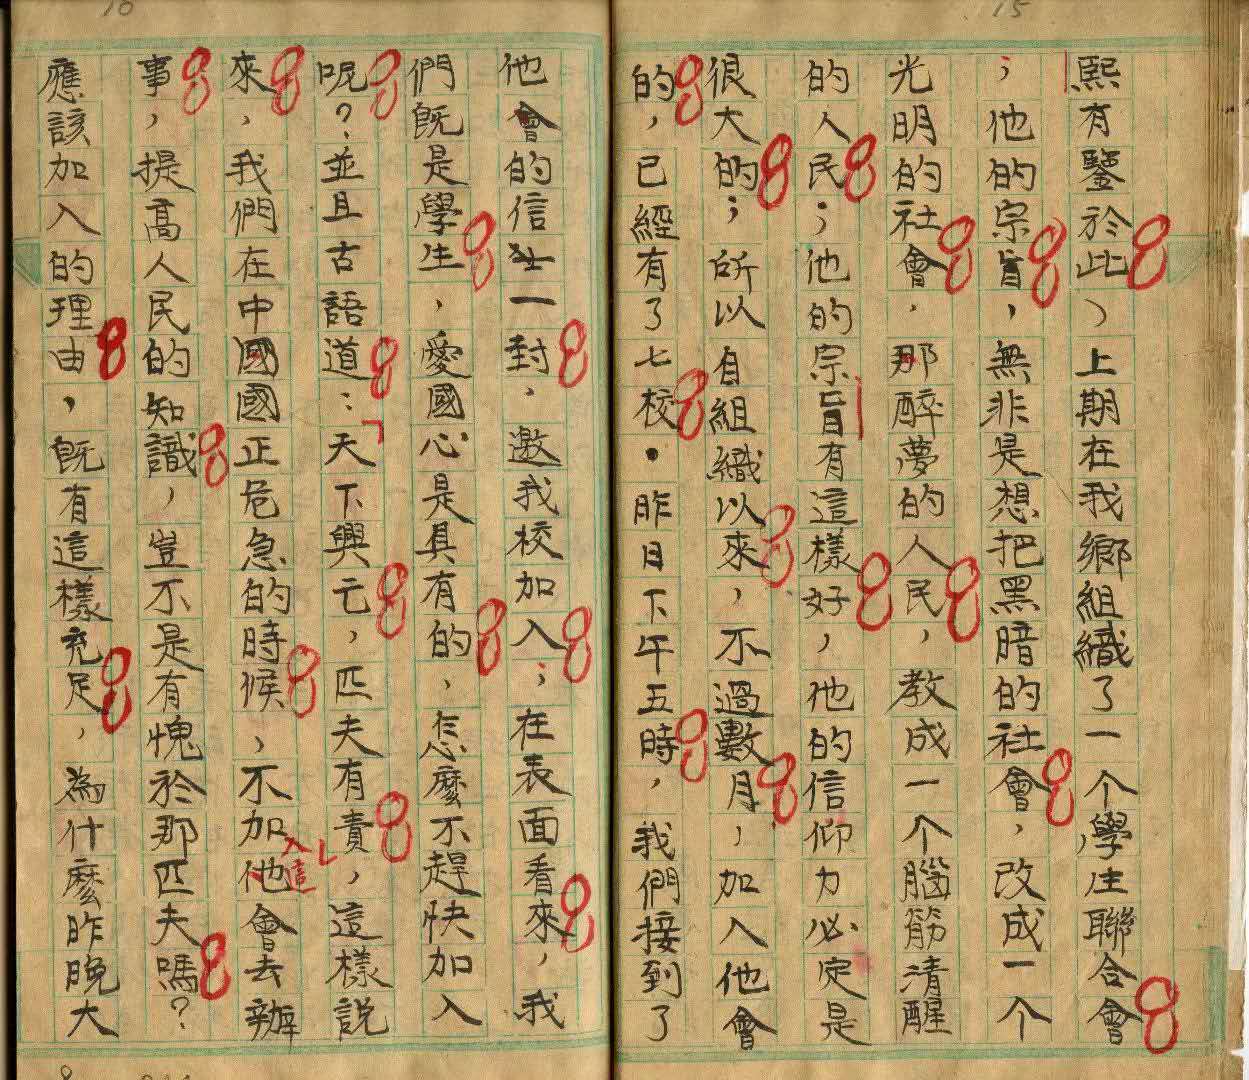 15
熙有鑒於此）上期在我鄉組織了一个學生聯合會
；他的宗旨，無非是想把黑暗的社會，改成一个
光明的社會，那醉夢的人民，教成一个腦筋清醒
的人民；他的宗旨有這樣好，他的信仰力必定是
很大的；所以自組織以來，不過數月，加入他會
的，已經有了七校．昨日下午五時，我們接到了
16
他會的信一封，邀我校加入；在表面看來，我
們既是學生，愛國心是具有的，怎麼不趕快加入
呢？並且古語道：「天下興亡，匹夫有責」，這樣說
來，我們在中國國正危急的時候，不加入這他會去辦
事，提高人民的知識，豈不是有愧於那匹夫嗎？
應該加入的理由，既有這樣充足，為什麼昨晚大